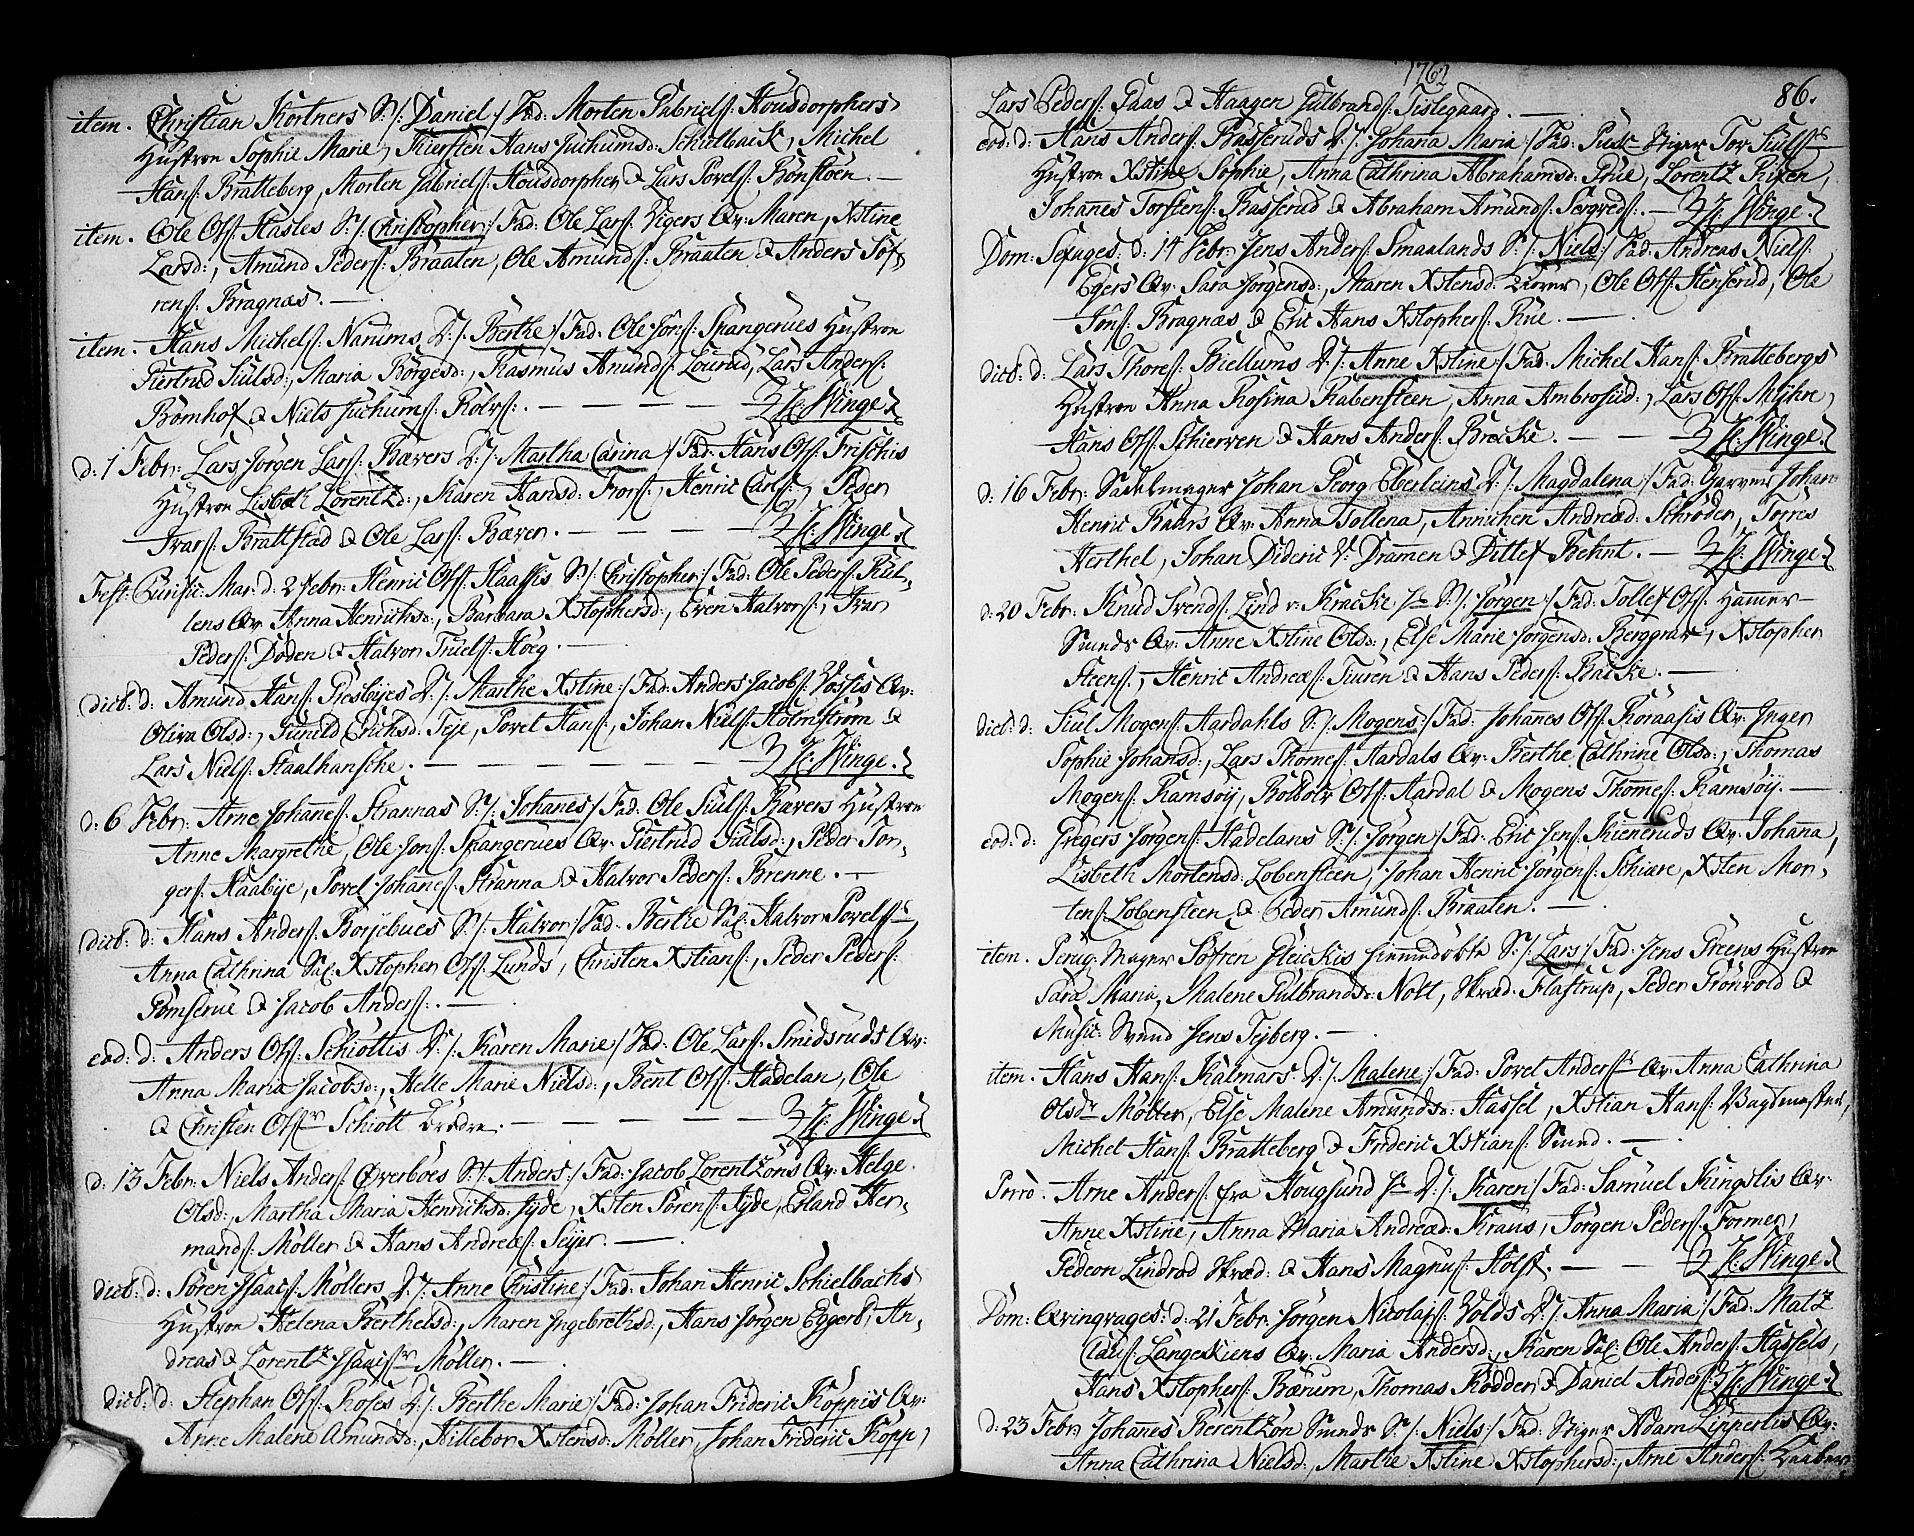 item. Christian Körtners S:/ Daniel /: Fad: Morten Gabriels: Housdorphers
Hustroe Sophie Marie, Kiersten Hans Juchumsd: Schielback, Michel
Hans: Bratteberg, Morten Gabriels: Housdorpher & Lars Povels: Bönstöen. —
item. Ole Ols: Hasles S:/ Christopher /: Fad: Ole Lars: Vigers Qv: Maren, Xstine
Larsd:, Amund Peders: Braaten, Ole Amunds: Braaten & Anders Söf-
rens: Bragnæs. —
item. Hans Michels: Narums D:/ Berthe /: Fad: Ole Jöns: Spangerues Hustroe
Giertrud Siulsd:, Maria Börgesd:, Rasmus Amunds: Lourud, Lars Anders:
Bömhof & Niels Juchums: Rolvs: — — — — H: Winge.
d: 1 Febr: Lars Jörgen Lars: Bævers D:/ Martha Carina /: Fad: Hans Ols: Frischis
Hustroe Lisbeth Lorentzd:, Karen Hansd: Frors:, Henric Carls:, Peder
Ivars: Brattstad & Ole Lars: Bæver. — — — H: Winge
Fest: Purific: Mar: d: 2 Febr: Henric Ols: Haassis S:/ Christopher /: Fad: Ole Peders: Kul-
lens Qv: Anna Henrichsd:, Barbara Xstophersd:, Even Halvors:, Ivar
Peders: Döden & Halvor Truels: Höeg. —
dict: d: Amund Hans: Presbyes D:/ Marthe Xstine /: Fad: Anders Jacobs: Vossis Qv:
Oliva Olsd:, Gunild Erichsd: Teje, Povel Hans:, Johan Niels: Holmström &
Lars Niels: Staalhansche. — — — — — H: Winge.
d: 6 Febr: Arne Johannes: Strannas S:/ Johanes /: Fad: Ole Siuls: Bævers Hustroe
Anne Margrethe, Ole Jons: Spangerues Qv: Giertrud Siulsd:, Peder Tor-
gers: Kaabye, Povel Johanes: Stranna & Halvor Peders: Brenne. —
dict: d: Hans Anders: Böyebues S:/ Halvor /: Fad: Berthe Sal: Halvor Povels:
Anna Cathrina Sal: Xstopher Ols: Lunds, Christen Xstians:, Peder Peders:
Römserue & Jacob Anders: —
eod: d: Anders Ols: Schiöttis D:/ Karen Marie /: Fad: Ole Lars: Smedsruds Qv:
Anna Maria Jacobsd:, Helle Marie Nielsd:, Bent Ols: Hadelan, Ole
& Christen Ols: Schiött Brödre. — — — — H: Winge
d: 13 Febr: Niels Anders: Överböes S:/ Anders /: Fad: Jacob Lorentzöns Qv: Helge
Olsd:, Martha Maria Henrichsd: Jyde, Xsten Sörens: Jyde, Erland Her-
mands: Möller & Hans Andreæs: Sejer. —
dict: d: Sören Isaacs: Möllers D:/ Anne Christine /: Fad: Johan Henric Schielbachs
Hustroe Helena Berthelsd:, Maren Ingebrethsd:, Hans Jörgen Eggerts, An-
dreas & Lorentz Isaacs: Möller. —
dict: d: Stephan Ols: Roses D:/ Berthe Marie /: Fad: Johan Frideric Koppis Qv:
Anne Malene Amundsd:, Hillebor Xstensd: Möller, Johan Frideric Kopp,
1762
86.
Lars Peders: Paas & Haagen Gulbrands: Tistegaard. —
eod: d: Hans Anders: Basseruds D:/ Johana Maria /: Fad: Stiger Tor Siuls:
Hustroe Xstine Sophie, Anna Cathrina Abrahamsd: Rue, Lorentz Rixen,
Johanes Torstens: Basserud & Abraham Amunds: Sergreds: — H: Winge.
Dom: Sexages: d: 14 Febr: Jens Anders: Smaalands S:/ Niels /: Fad: Andreas Niels:
Egers Qv: Sara Jörgensd:, Maren Xstensd:, Ole Ols: Stenserud, Ole
Jöns: Bragnæs & Eric Hans Xstophers: Rue. —
dict: d: Lars Thores: Biellums D:/ Anne Xstine /: Fad: Michel Hans: Brattebergs
Hustroe Anna Rosina Rabensteen, Anna Ambrosiid:, Lars Ols: Myhre,
Hans Ols: Schierven & Hans Anders: Bracke. — — — H: Winge.
d: 16 Febr: Sadelmager Johan Georg Eberleins D:/ Magdalena /: Fad: Garver Johan
Henric Baars Qv: Anna Tollena, Annichen Andread: Schröder, Torres
Herthel, Johan Dideric v: Dramen & Ditlef Behnt. — H: Winge
d: 20 Febr: Knud Svends: Lind v: Kracke S:/ Jörgen /: Fad: Tollef Ols: Hammer-
Smeds Qv: Anne Xstine Olsd:, Else Marie Jörgensd: Berggrav, Xstopher
Steens:, Henric Andreæs: Tiuren & Hans Peders: Bracke. —
dict: d: Siul Mogens: Aardahls S:/ Mogens /: Fad: Johanes Ols: Roraasis Qv: Inger
Sophie Johansd:, Lars Thomes: Aardals Qv: Berthe Cathrine Olsd:, Thomas
Mogens: Ramsöy, Botholv Ols: Aardal & Mogens Thomes: Ramsöy. —
eod: d: Gregers Jörgens: Hadelans S:/ Jörgen /: Fad: Eric Jens: Kieneruds Qv: Johana,
Lisbeth Mortensd: Lobensteen, Johan Henric Jörgens: Schiære, Xsten Mor-
tens: Lobensteen & Peder Amunds: Braaten. —
item. Perug-Mager Söfren Gleuckis hiemedöbte S:/ Lars /: Fad: Jens Preens Hustroe
Sara Maria, Malene Gulbrandsd: Nolt, Skræd: Flastrup, Peder Grönvold &
Music: Svend Jens Tejberg. —
item. Hans Hans: Kalmars D:/ Malene /: Fad: Povel Anders: Qv: Anna Cathrina
Olsd: Möller, Else Malene Amundsd: Hassel, Xstian Hans: Vagtmester,
Michel Hans: Bratteberg & Frideric Xstians: Smed. —
Porro. Arne Anders: fra Hougsund D:/ Karen /: Fad: Samuel Kingslis Qv:
Anne Xstine, Anna Maria Andread: Kraus, Jörgen Peders: Former,
Gedeon Lindrod Skræd: & Hans Magnus: Holst. — — H: Winge
Dom: Qvinqvages: d: 21 Febr: Jörgen Nicolajs: Volds D:/ Anna Maria /: Fad: Matz
Claus: Langeskiens Qv: Maria Andersd:, Karen Sal: Ole Anders: Hassels,
Hans Xstophers: Bærum, Thomas Rödder & Daniel Anders: H: Winge
d: 23 Febr: Johanes Berentzön Smeds S:/ Niels /: Fad: Stiger Adam Lippertis Qv:
Anna Cathrina Nielsd:, Marthe Xstine Xstophersd:, Arne Anders: